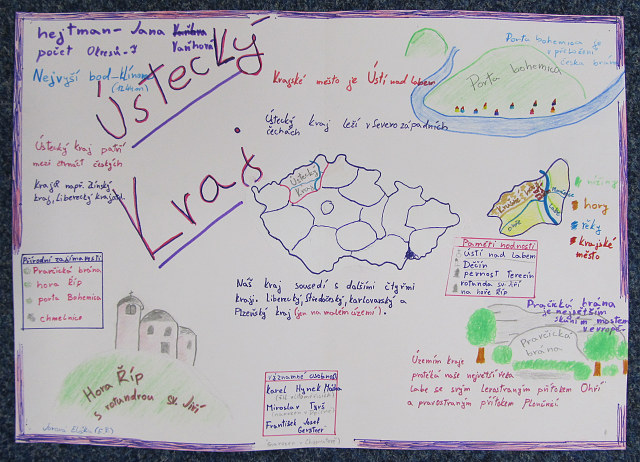 hejtman- Jana
Vaňhová
počet Okresů-7
Nejvyší bod-Klínovec
(1244m)
Ústecký
Kraj
Krajské město je Ústí nad Labem
Porta bohemica je
česká brána
Porta bohemica
Ústecký kraj leží v Severozápadních
čechách
Ústecký kraj patří
mezi čtrnáct českých
krajů např. Zlínský
kraj, Liberecký kraj atd.
Ústecký
Kraj
Krušné hory
ohře
Labe
nížiny
hory
řeky
krajské
město
Přírodní zajímavosti
Pravčická brána
hora Říp
porta Bohemica
chmelnice
Paměti hodnosti
ústí nad Labem
Děčín
pevnost Terezín
rotunda sv. Jiří
na hoře Říp
Náš kraj sousedí s dalšími čtyřmi
kraji. Liberecký, Středočeský, karlovarský a
Plzeňský kraj (jen na malém území).
Pravčická brána
je největším
skalním mostem
v evropě.
Pravčická
brána
Hora Říp
s rotundrou sv. Jiří
významné osobnosti
Karel Hynek Mácha
Miroslav Tyrš
František Josef
Gerstner
Územím kraje
protéká naše největší řeka
Labe se svým levostranným přítokem Ohří
a pravostranným přítokem Ploučnicí